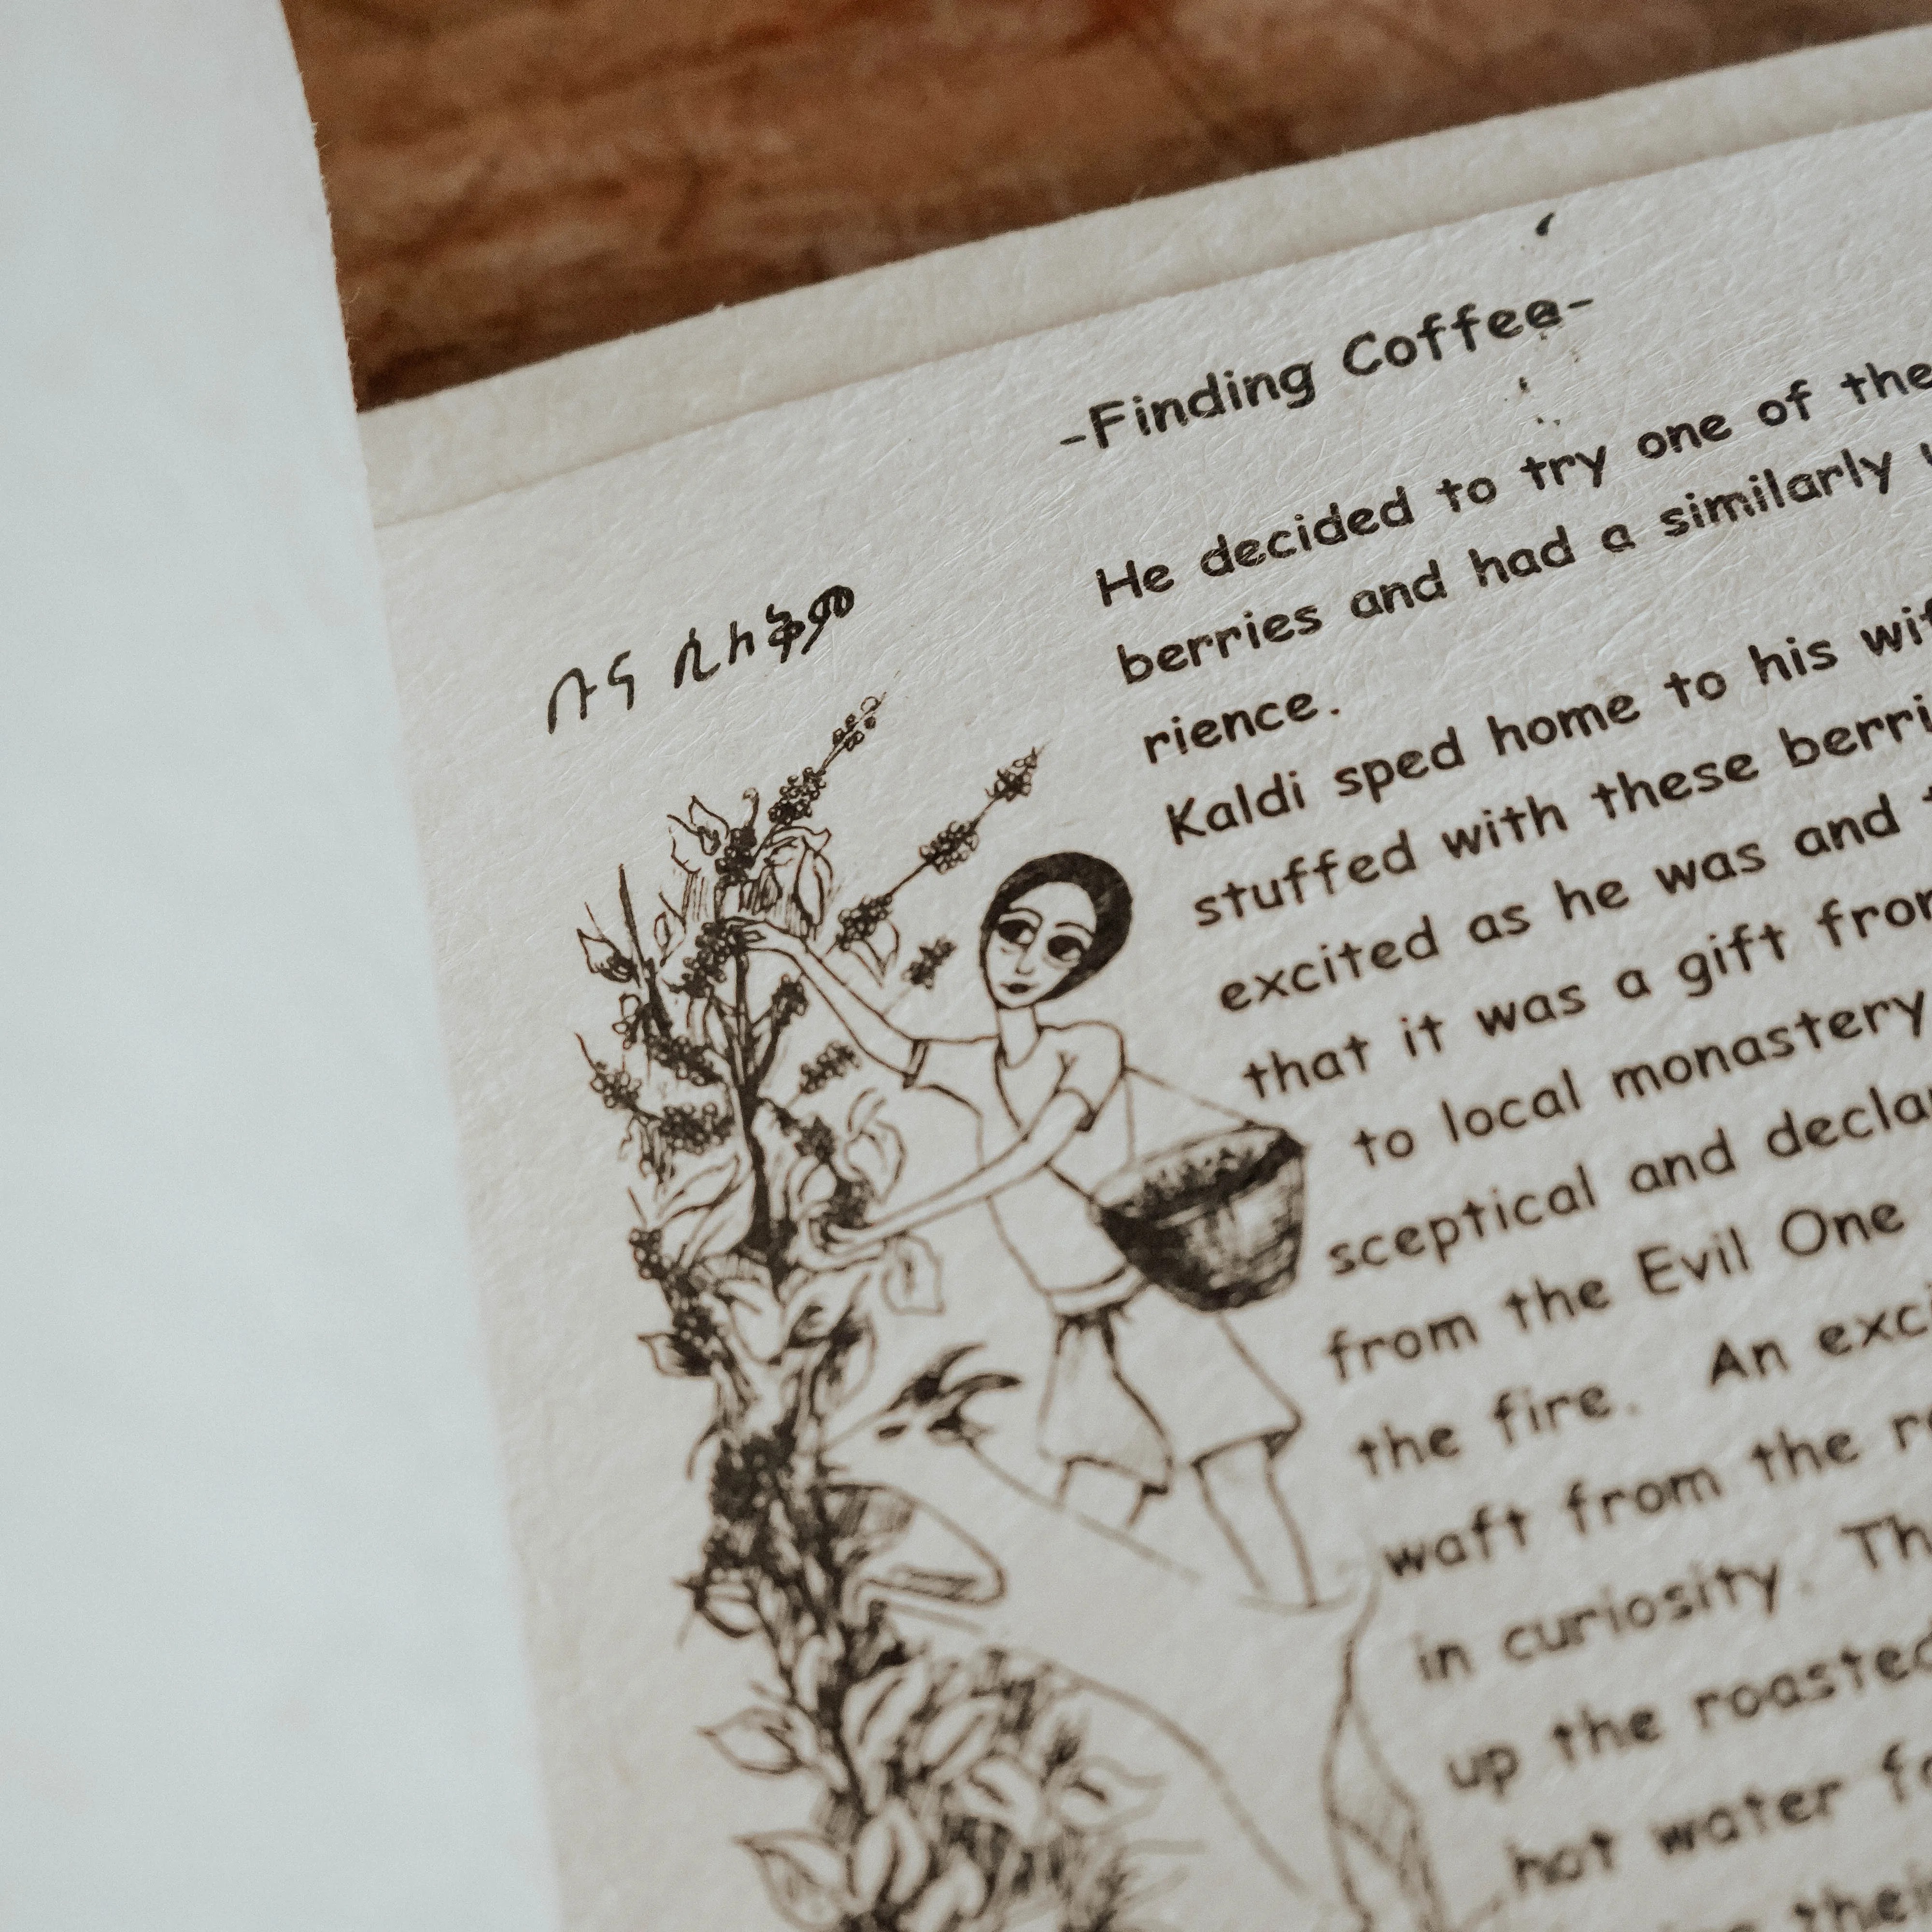 -Finding Coffee-
ቡና ሲለቅም
He decided to try one of the
berries and had a similarly
rience.
Kaldi sped home to his
stuffed with these
excited as he was and
that it was a gift
to local monastery
sceptical and
from the Evil One
the fire. An
waft from the
in curiosity.
up the roasted
hot water